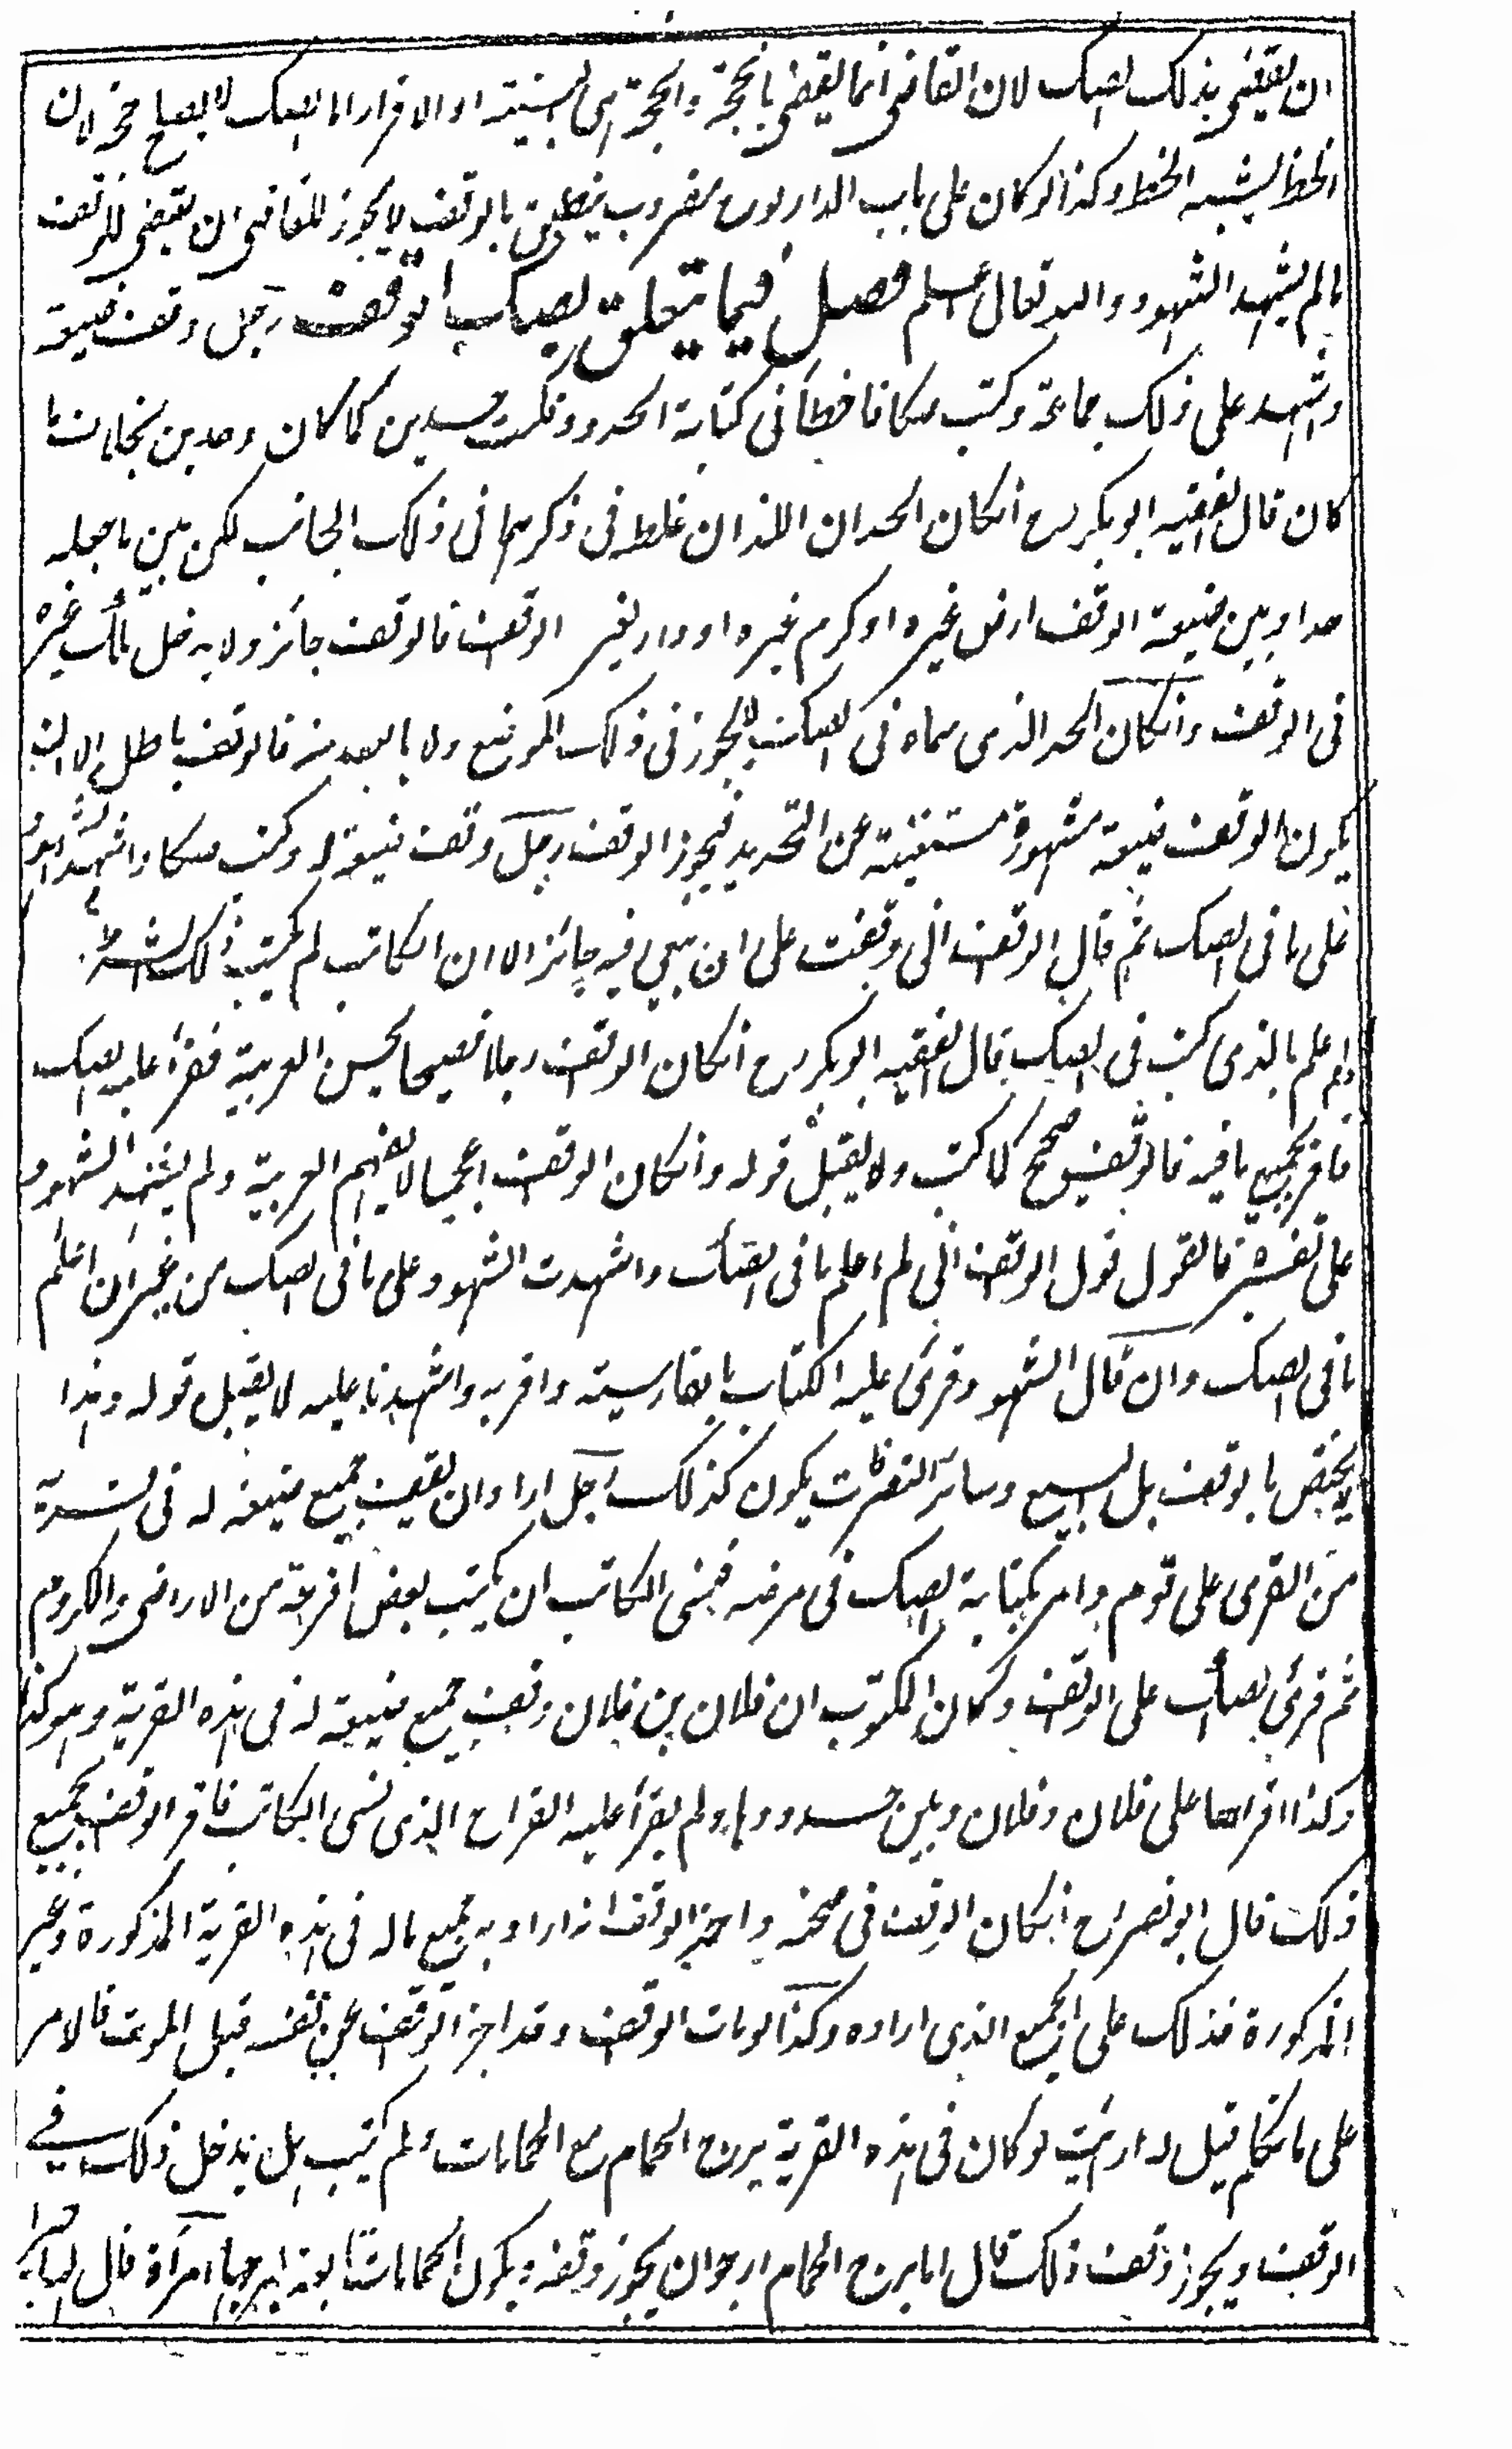 ان يقضى بذلك الصك لان القاضى انما يقضى بالحجة والحجة هى البينة او الاقرار اما الصك لا يصلح حجة لان
الخط يشبه الخط وكذا لو كان على باب الدار لوح مضروب ينطق بالوقف لا يجوز للقاضى ان يقضى بالوقف
ما لم يشهد الشهود والله تعالى اعلم فصل فيما يتعلق بصك الوقف رجل وقف ضيعة
واشهد على ذلك جماعة وكتب صكا فاخطأ فى كتابة الحدود فكتب حدين كما كان وحدين بخلاف ما
كان قال الفقيه ابو بكر رح انكان الحدان اللذان غلط فى ذكرهما فى ذلك الجانب لكن بين ما جعله
حدا وبين ضيعة الوقف ارض غيره او كرم غيره او دار لغير الوقف فالوقف جائز ولا يدخل ملك غيره
فى الوقف وانكان الحد الذى سماه فى الصك لا يوجد فى ذلك الموضع ولا بالبعد منه فالوقف باطل الا ان
يكون الوقف ضيعة مشهورة مستغنية عن التحديد فيجوز الوقف رجل وقف ضيعة له وكتب صكا واشهد الشهود
على ما فى الصك ثم قال الواقف انى وقفت على ان بيعى فيه جائز الا ان الكاتب لم يكتب ذلك الشرط
ولم اعلم بالذى كتب فى الصك قال الفقيه ابو بكر رح انكان الواقف رجلا فصيحا يحسن العربية فقرأ عليه الصك
فاقر بجميع ما فيه فالوقف صحيح كما كتب ولا يقبل قوله وانكان الواقف اعجميا لا يفهم العربية ولم يشهد الشهود
على تفسيره فالقول قول الواقف انى لم اعلم ما فى الصك واشهدت الشهود على ما فى الصك من غير ان اعلم
ما فى الصك وان قال الشهود قرئ عليه الكتاب بالفارسية واقر به واشهدنا عليه لا يقبل قوله وهذا
لا يختص بالوقف بل البيع وسائر التصرفات يكون كذلك رجل اراد ان يقف جميع ضيعة له فى قرية
من القرى على قوم وامر بكتابة الصك فى مرضه فنسى الكاتب ان يكتب بعض اقرحة من الاراضى والكروم
ثم قرئ الصك على الواقف وكان المكتوب ان فلان بن فلان وقف جميع ضيعة له فى هذه القرية وهو كذا
وكذا قراحا على فلان وفلان وبين حدودها ولم يقرأ عليه القراح الذى نسى الكاتب فاقر الواقف بجميع
ذلك قال ابو نصر رح انكان الوقف فى صحته واخبر الواقف انه اراد به جميع ماله فى هذه القرية المذكورة وغير
المذكورة فذلك على الجميع الذى اراده وكذا لو مات الواقف وقد اخبر الواقف عن نفسه قبل الموت فالامر
على ما تكلم قيل له ارأيت لو كان فى هذه القرية برج الحمام مع الحمامات ولم يكتب هل يدخل ذلك فى
الوقف ويجوز وقف ذلك قال اما برج الحمام ارجو ان يجوز وقفه ويكون الحمامات تابعة لبرجها امرأة قال لها